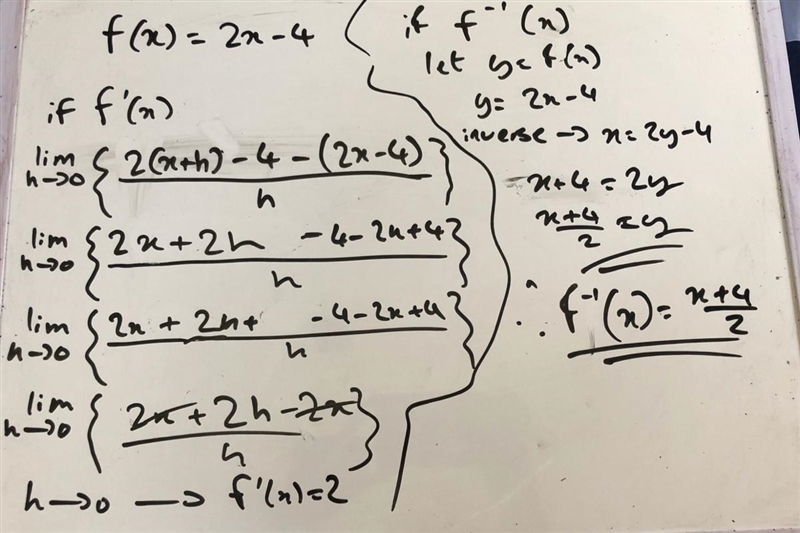 f(x) = 2x - 4
if f'(x)
lim h→0 { 2(x+h) - 4 - (2x-4) / h }
lim h→0 { 2x + 2h - 4 - 2x + 4 / h }
lim h→0 { 2x + 2h + - 4 - 2x + 4 / h }
lim h→0 { 2x + 2h - 2x / h }
h→0 → f'(x) = 2
if f⁻¹(x)
let y = f(x)
y = 2x - 4
inverse → x = 2y - 4
x + 4 = 2y
x+4 / 2 = y
∴ f⁻¹(x) = x+4 / 2